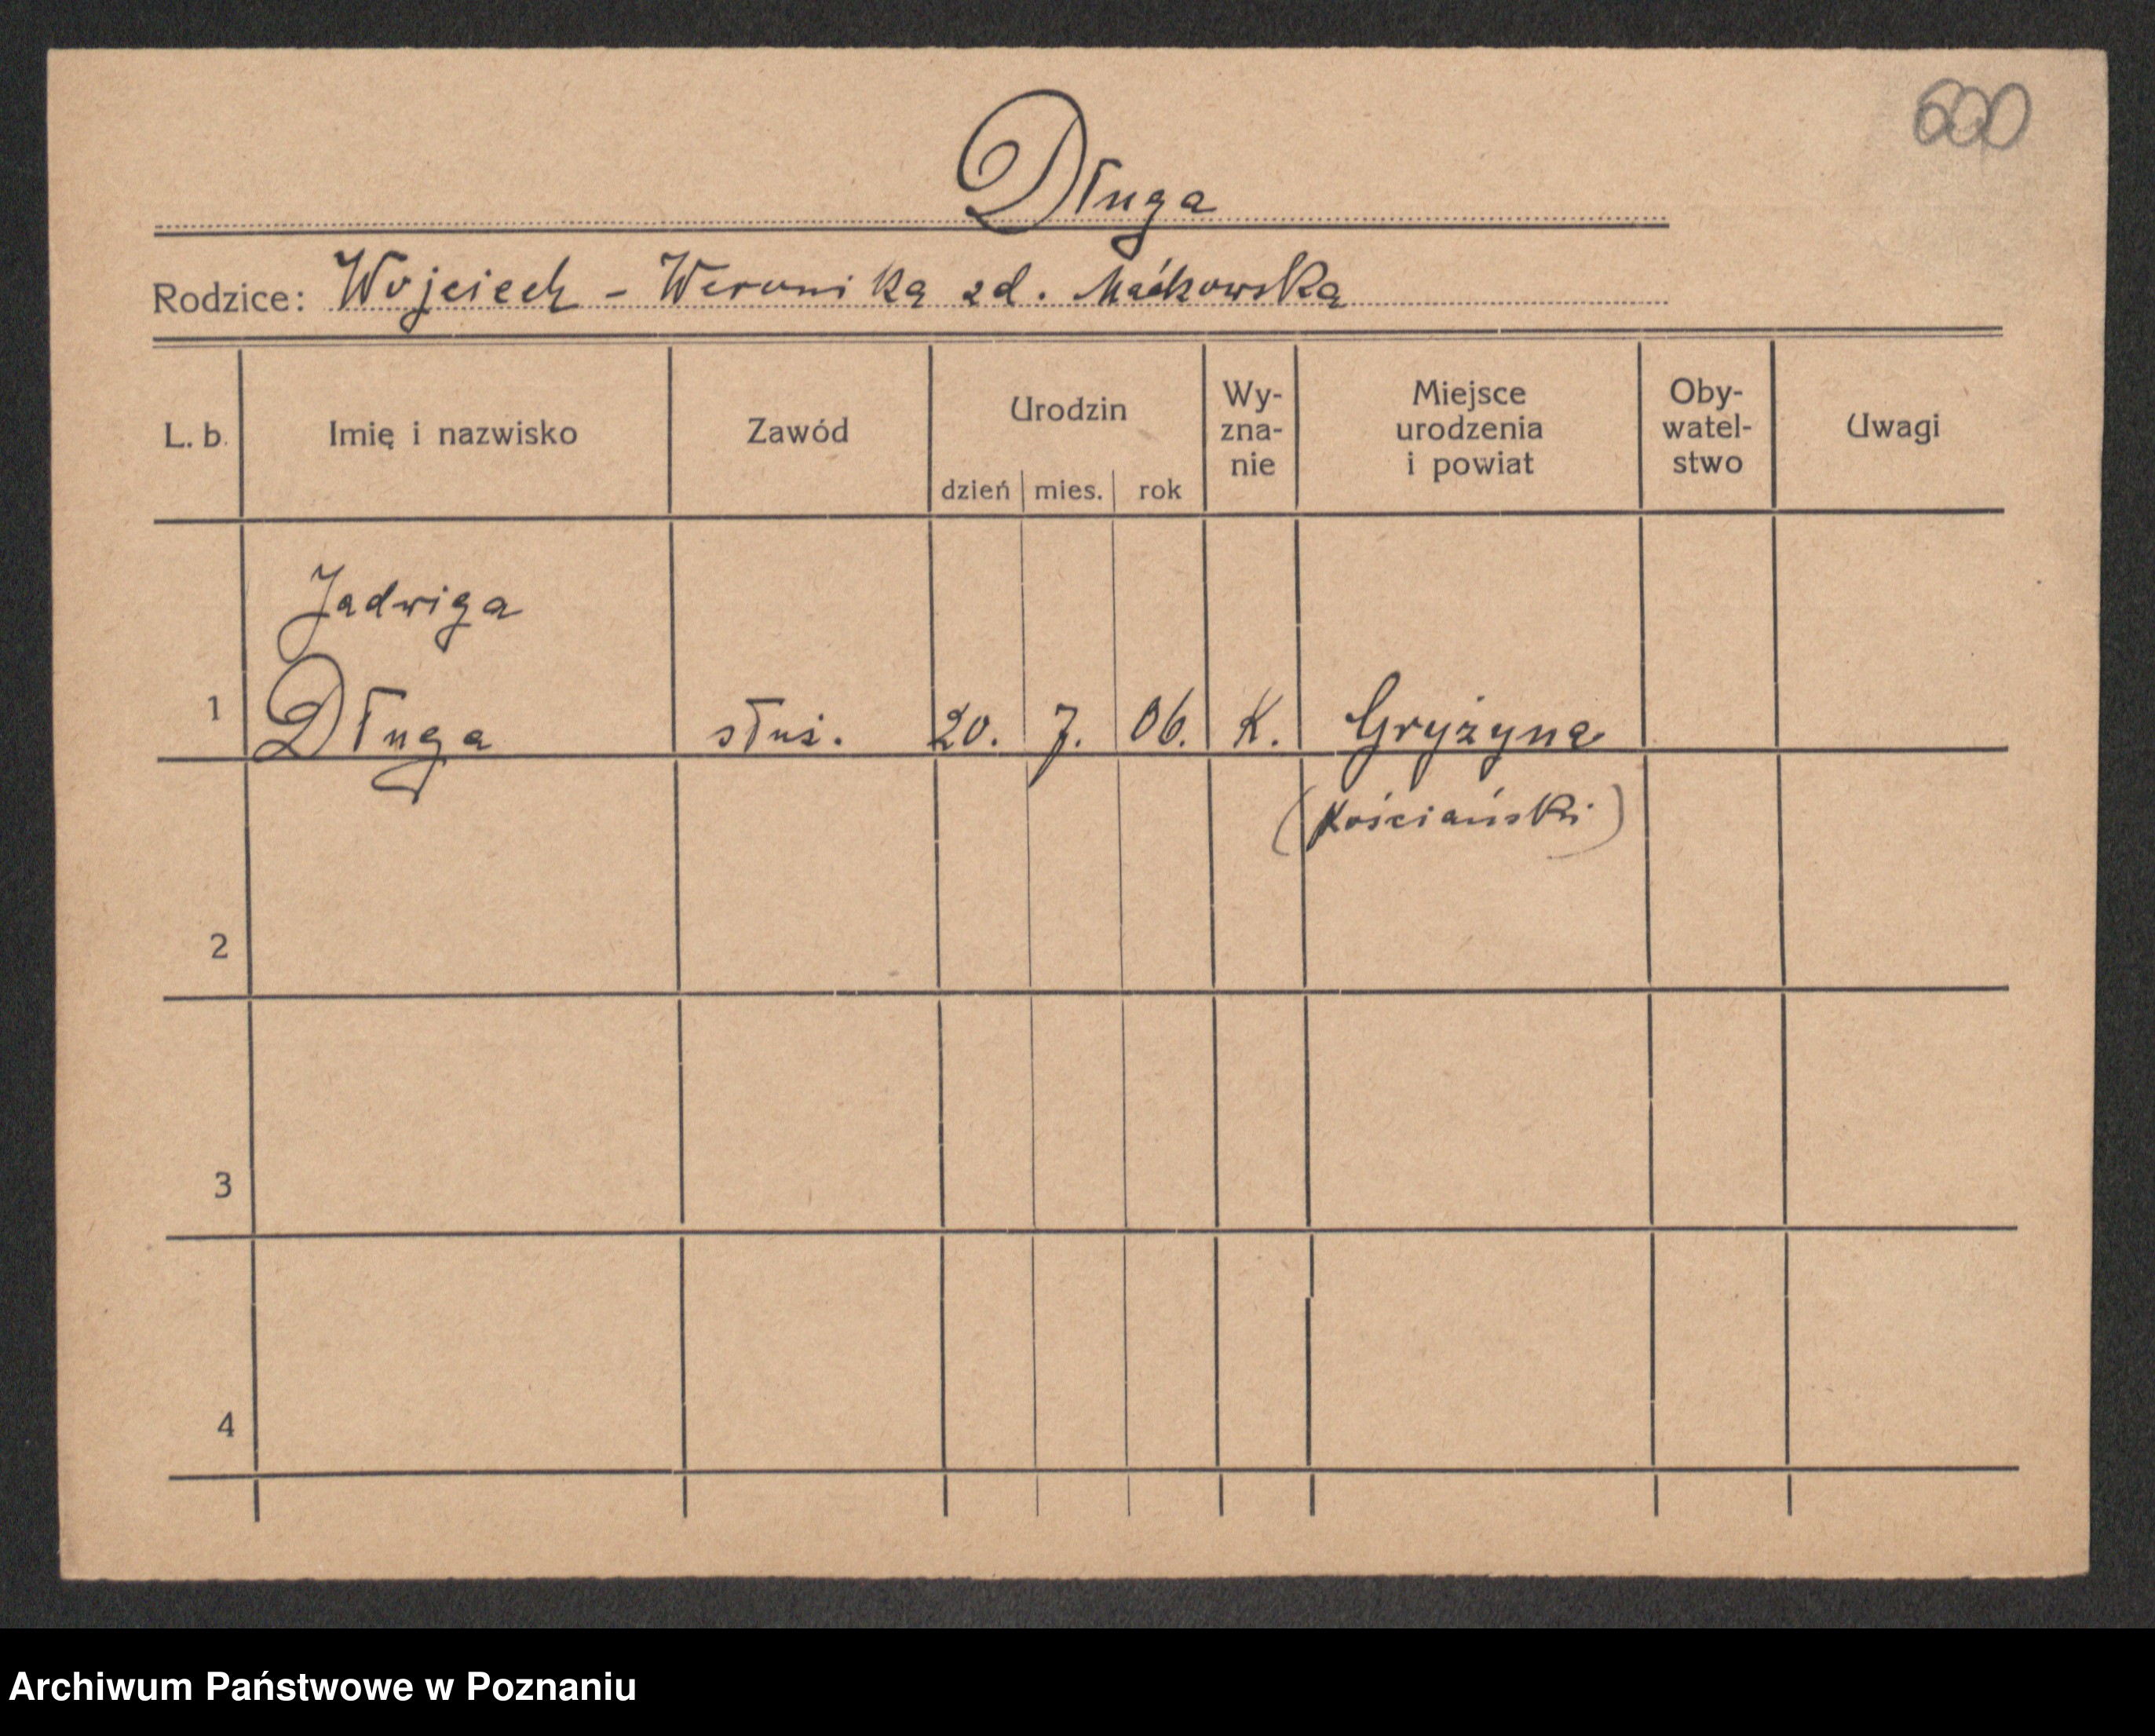 600
Długa
Rodzice: Wojciech - Weronika zd. Maćkowska
L. b. | Imię i nazwisko | Zawód | Urodzin dzień mies. rok | Wy-zna-nie | Miejsce urodzenia i powiat | Oby-watel-stwo | Uwagi
Jadwiga
1 Długa służ. 20. 7. 06. K. Gryżyna
(Kościański)
2
3
4
Archiwum Państwowe w Poznaniu